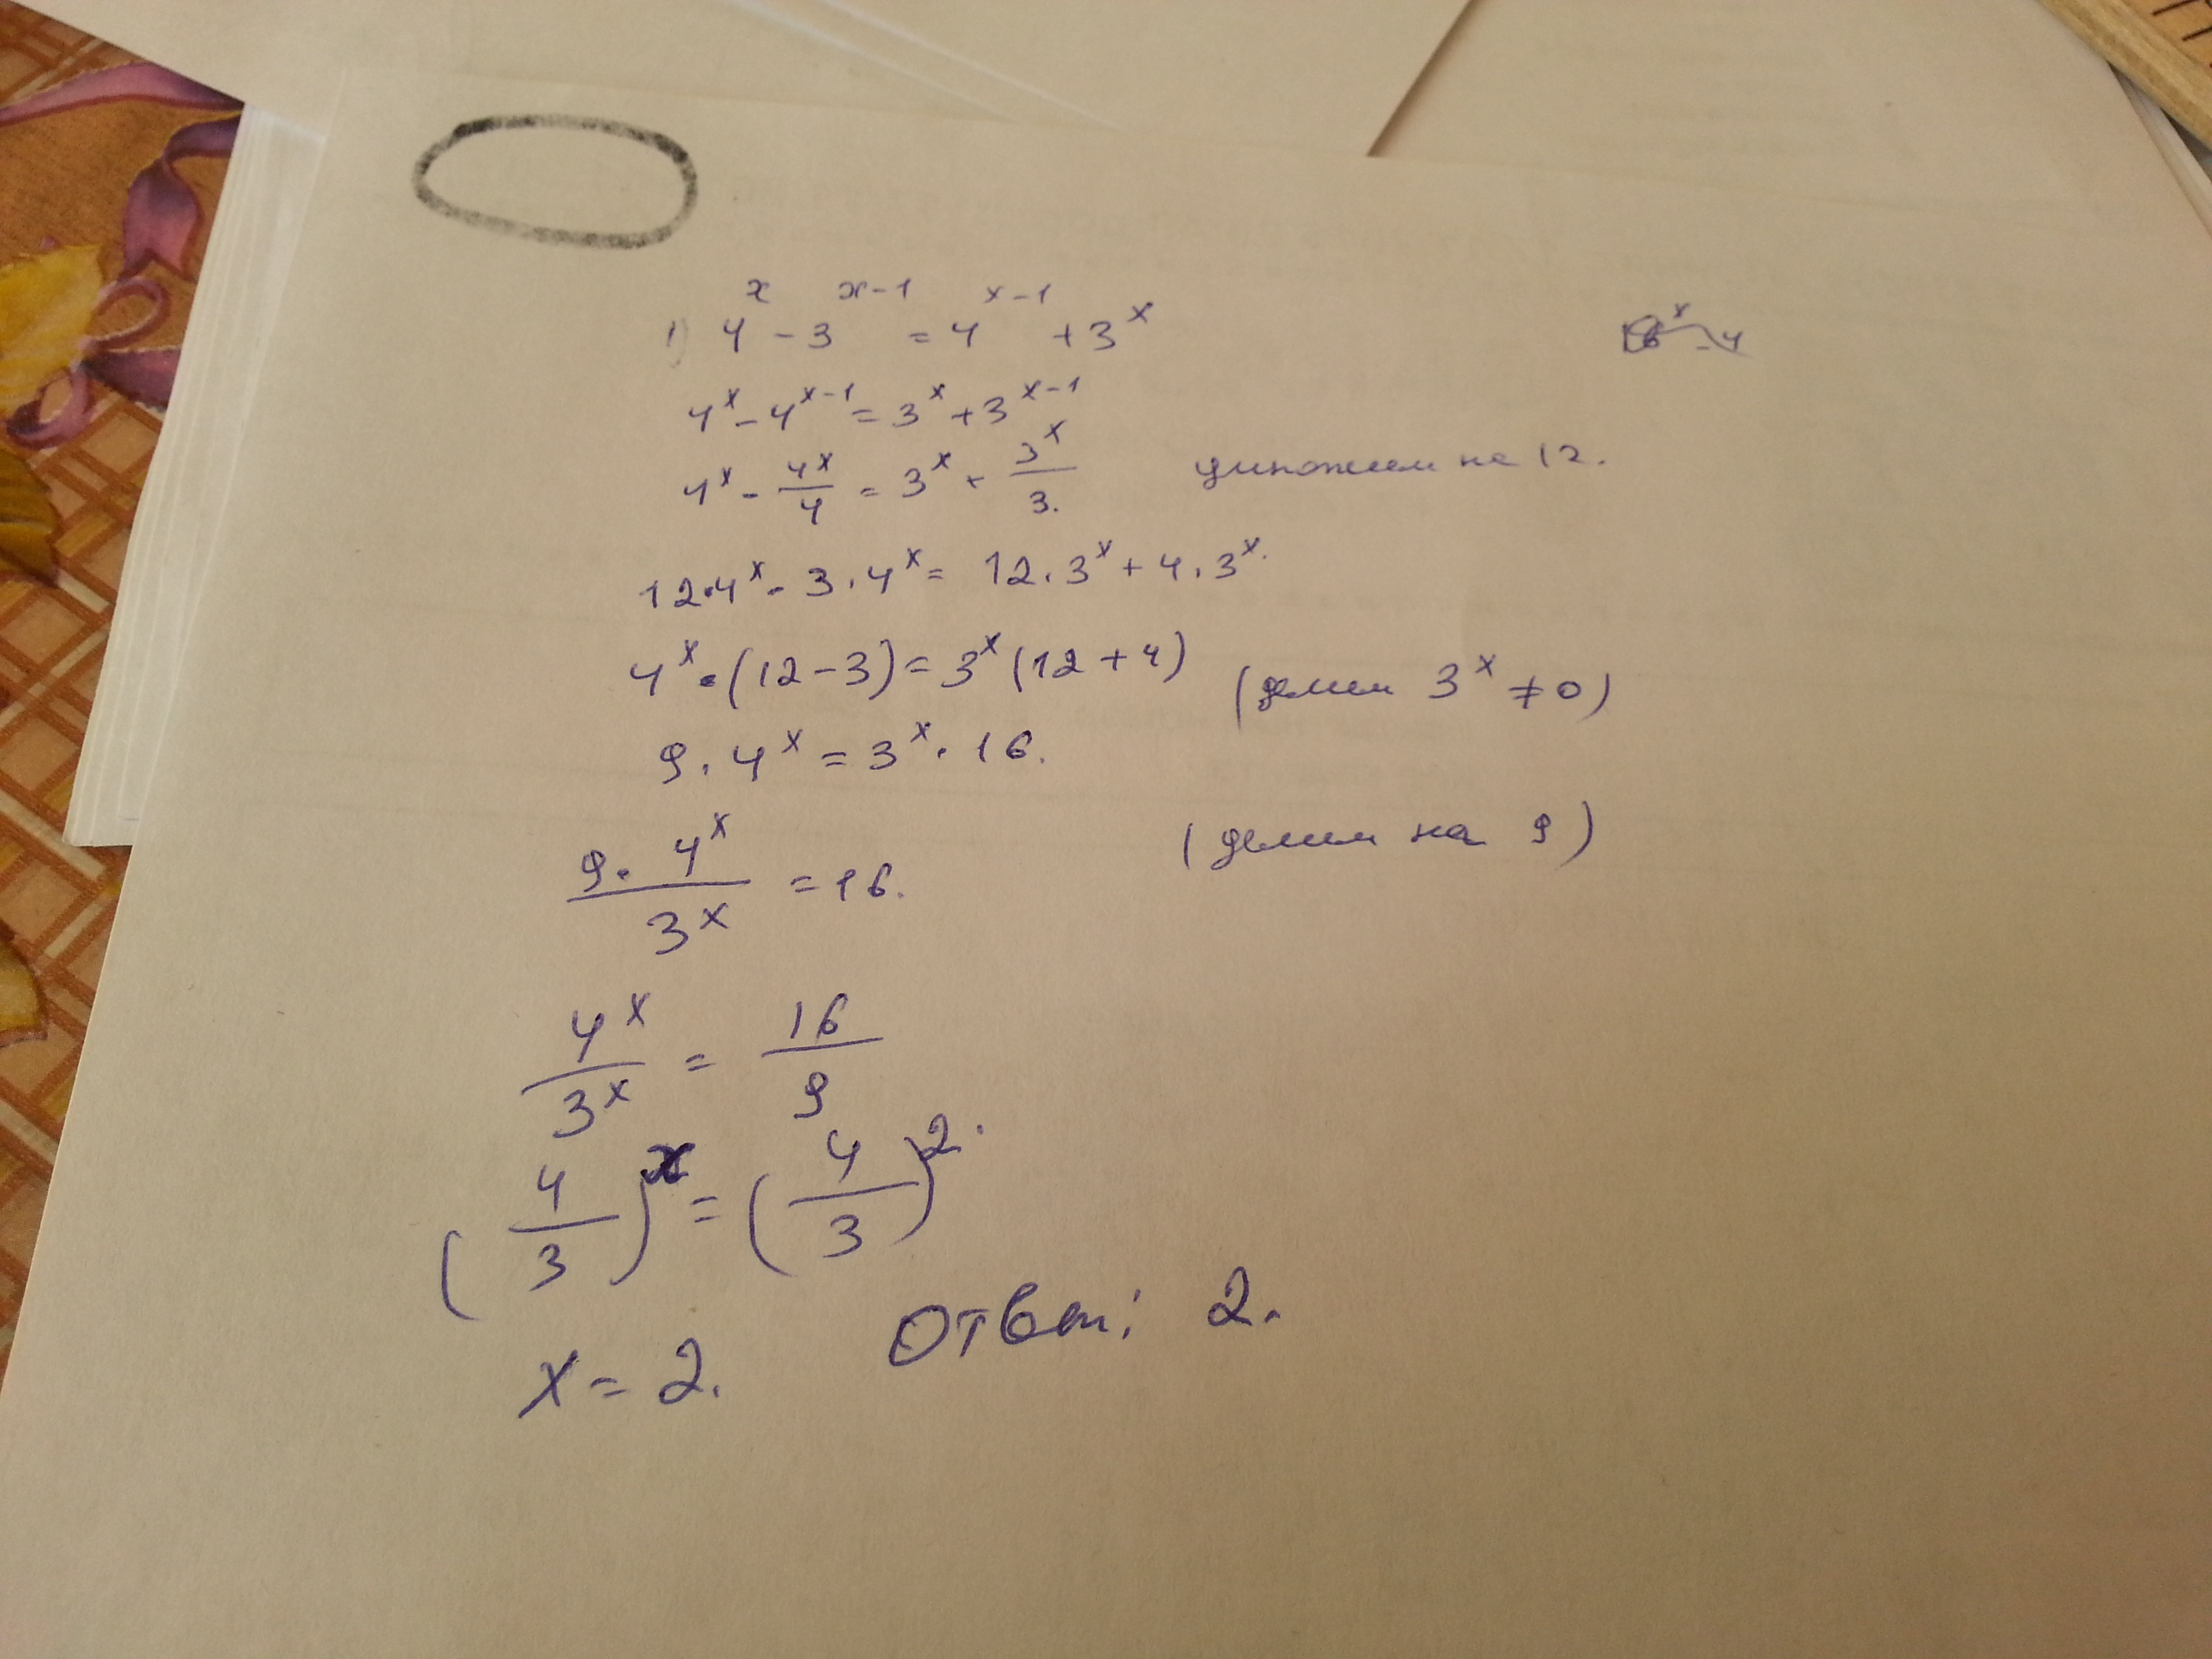 1) 4^x - 3^(x-1) = 4^(x-1) + 3^x
4^x - 4^(x-1) = 3^x + 3^(x-1)
4^x - 4^x/4 = 3^x + 3^x/3. умножим на 12.
12·4^x - 3·4^x = 12·3^x + 4·3^x.
4^x·(12-3) = 3^x(12+4) (делим 3^x ≠ 0)
9·4^x = 3^x·16.
9·4^x/3^x = 16. (делим на 9)
4^x/3^x = 16/9
(4/3)^x = (4/3)^2.
x = 2. Ответ: 2.